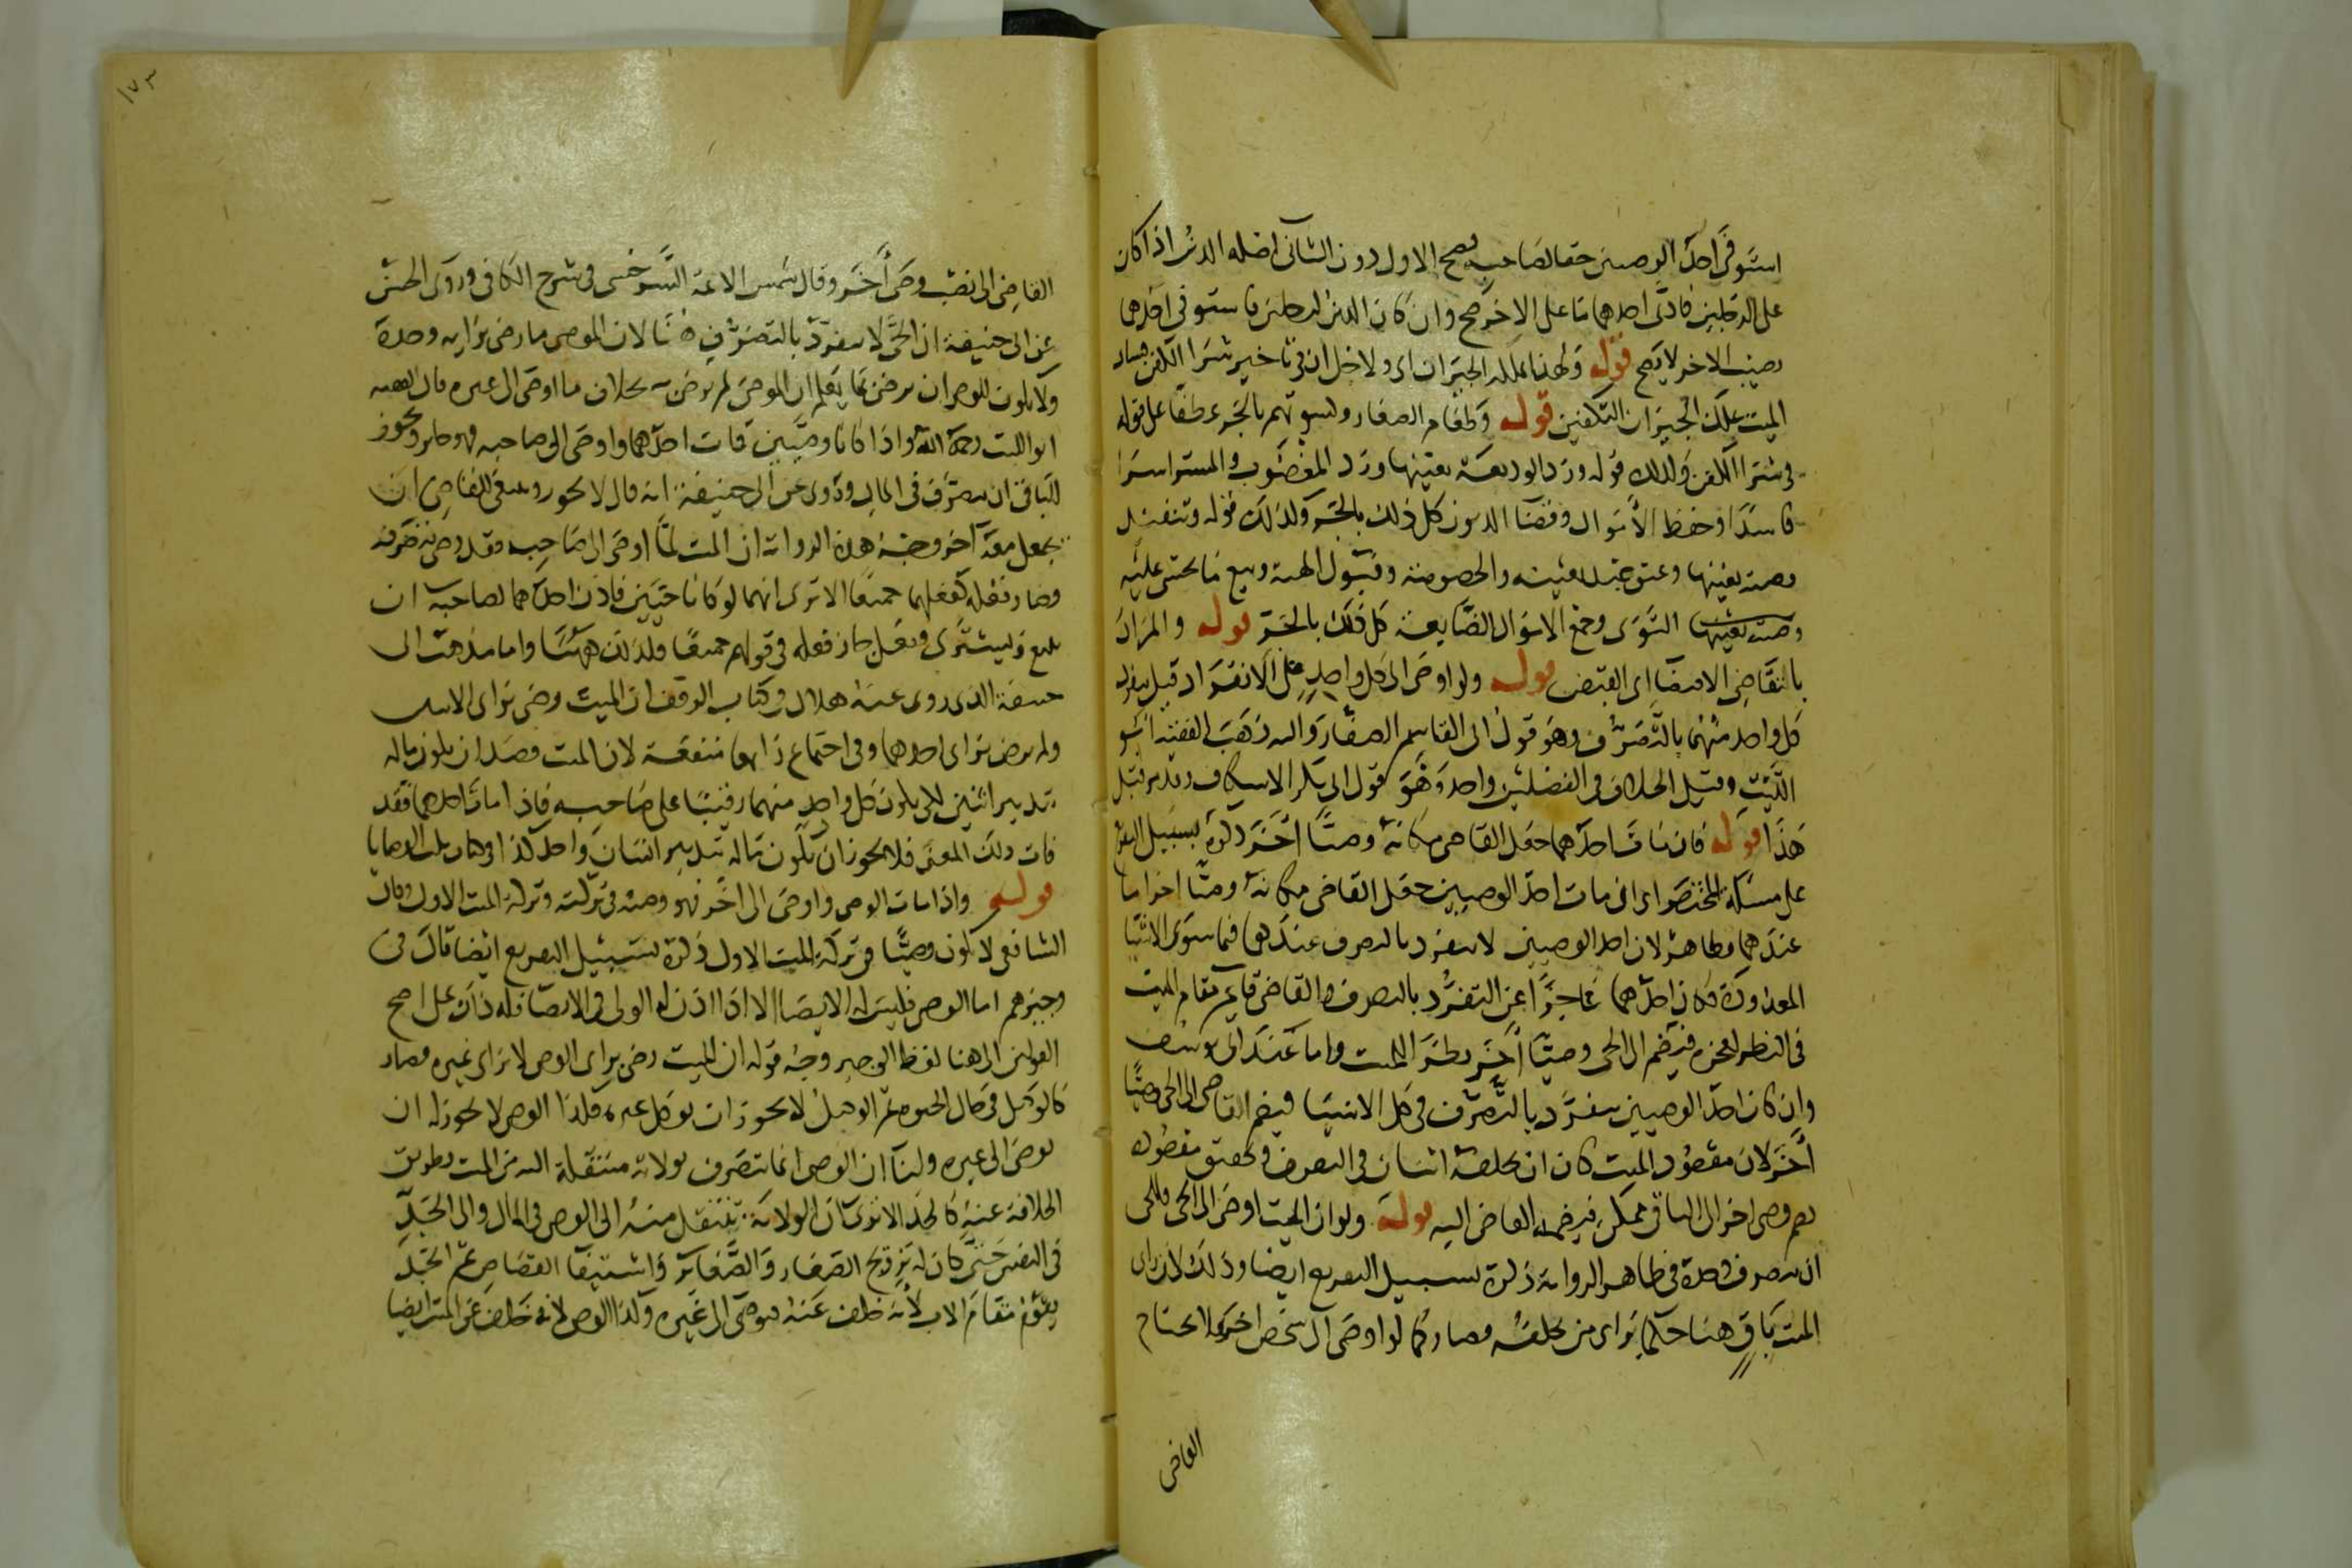 استوفى احد الوصيين حقا لصاحبه صح الاول دون الثاني اصله الدين اذا كان
على الرجلين فادى احدهما ما على الاخر صح وان كان الدين لرجلين فاستوفى احدهما
نصيب الاخر لا يصح قوله ولهذا يملكه الجيران اى ولاجل ان فى تاخير شرا الكفن فساد
الميت يملك الجيران التكفين قوله وطعام الصغار وكسوتهم بالجر عطفا على قوله
فى شرا الكفن وكذلك قوله ورد الوديعة بعينها ورد المغصوب والمشترا شرا
فاسدا وحفظ الاموال وقضا الديون كل ذلك بالجر وكذلك قوله وتنفيذ
وصية بعينها وعتق عبد بعينه والخصومة وقبول الهبة وبيع ما يخشى عليه
وصية بعينها التوى وجمع الاموال الضايعة كل ذلك بالجر قوله والمراد
بالتقاضى الاقتضا اى القبض قوله ولو اوصى الى كل واحد على الانفراد قيل ينفرد
كل واحد منهما بالتصرف وهو قول ابى القاسم الصفار واليه ذهب الفقيه ابو
الليث وقيل الخلاف فى الفصلين واحد وهو قول ابى بكر الاسكاف وقد مر قبل
هذا قوله فان مات احدهما جعل القاضى مكانه وصيا اخر ذكره بسبيل التفريع
على مسئلة المختصر اى ان مات احد الوصيين جعل القاضى مكانه وصيا اخر اما
عندهما فظاهر لان احد الوصيين لا ينفرد بالتصرف عندهما فيما سوى الاشيا
المعدودة فكان احدهما عاجزا عن التفرد بالتصرف والقاضى قايم مقام الميت
فى النظر لعجزه فيضم الى الحى وصيا اخر نظرا للميت واما عند ابى يوسف
وان كان احد الوصيين ينفرد بالتصرف فى كل الاشيا فيضم القاضى الى الحى وصيا
اخر لان مقصود الميت كان ان يخلفه اثنان فى التصرف وتحقيق مقصوده
بضم وصى اخر الى الباقى ممكن فيضمه القاضى اليه قوله ولو ان الميت اوصى الى الحى فللحى
ان يتصرف وحده فى ظاهر الرواية ذكره بسبيل التفريع ايضا وذلك لان راى
الميت باق هنا حكما براى من يخلفه فصار كما لو اوصى الى شخص اخر ولا يحتاج
القاضى
١٧٣
القاضى الى نصب وصى اخر وقال شمس الائمة السرخسى فى شرح الكافى وروى الحسن
عن ابى حنيفة ان الحى لا ينفرد بالتصرف هنا لان الموصى ما رضى برايه وحده
ولا يكون للوصى ان يرضى بما يعلم ان الموصى لم يرض به بخلاف ما اوصى الى غيره قال الفقيه
ابو الليث رحمه الله واذا كانا وصيين فمات احدهما واوصى الى صاحبه فهو جايز ويجوز
للباقى ان يتصرف فى المال وروى عن ابى حنيفة انه قال لا يجوز وينبغى للقاضى ان
يجعل معه اخر وجه هذه الرواية ان الميت لما اوصى الى صاحبه فقد رضى بتصرفه
وصار فعله كفعلهما جميعا الا ترى انهما لو كانا حيين فاذن احدهما لصاحبه ان
يبيع وليشترى ففعل جاز فعله فى قولهم جميعا فلذلك ههنا واما مذهب ابى
حنيفة الذى روى عنه هلال فى كتاب الوقف ان الميت رضى براى الاثنين
ولم يرض براى احدهما وفى اجتماع رايهما منفعة لان الميت قصد ان يكون ماله
بتدبير اثنين لكى يكون كل واحد منهما رقيبا على صاحبه فاذا مات احدهما فقد
فات ذلك المعنى فلا يجوز ان يكون ماله بتدبير انسان واحد كذا فى كتاب نكت الوصايا
قوله واذا مات الوصى واوصى الى اخر فهو وصيه فى تركته وتركة الميت الاول وقال
الشافعى لا يكون وصيا فى تركة الميت الاول ذكره بسبيل التفريع ايضا قال فى
وجيزهم اما الوصى فليس له الايصا الا اذا اذن له الولى فى الايصا فله ذلك على اصح
القولين الى هنا لفظ الوجيز وجه قوله ان الميت رضى براى الوصى لا براى غيره فصار
كالوكيل فى حال الحيوة ثم الوكيل لا يجوز ان يوكل غيره فكذا الوصى لا يجوز له ان
يوصى الى غيره ولنا ان الوصى انما يتصرف بولاية منتقلة اليه من الميت بطريق
الخلافة عنه كالجد الا ترى ان الولاية تنتقل منه الى الوصى فى المال والى الجد
فى النفس حتى كان له تزويج الصغار والصغاير واستيفا القصاص ثم الجد
يقوم مقام الاب لانه خلف عنه فيوصى الى غيره وكذا الوصى لانه خلف عن الميت ايضا